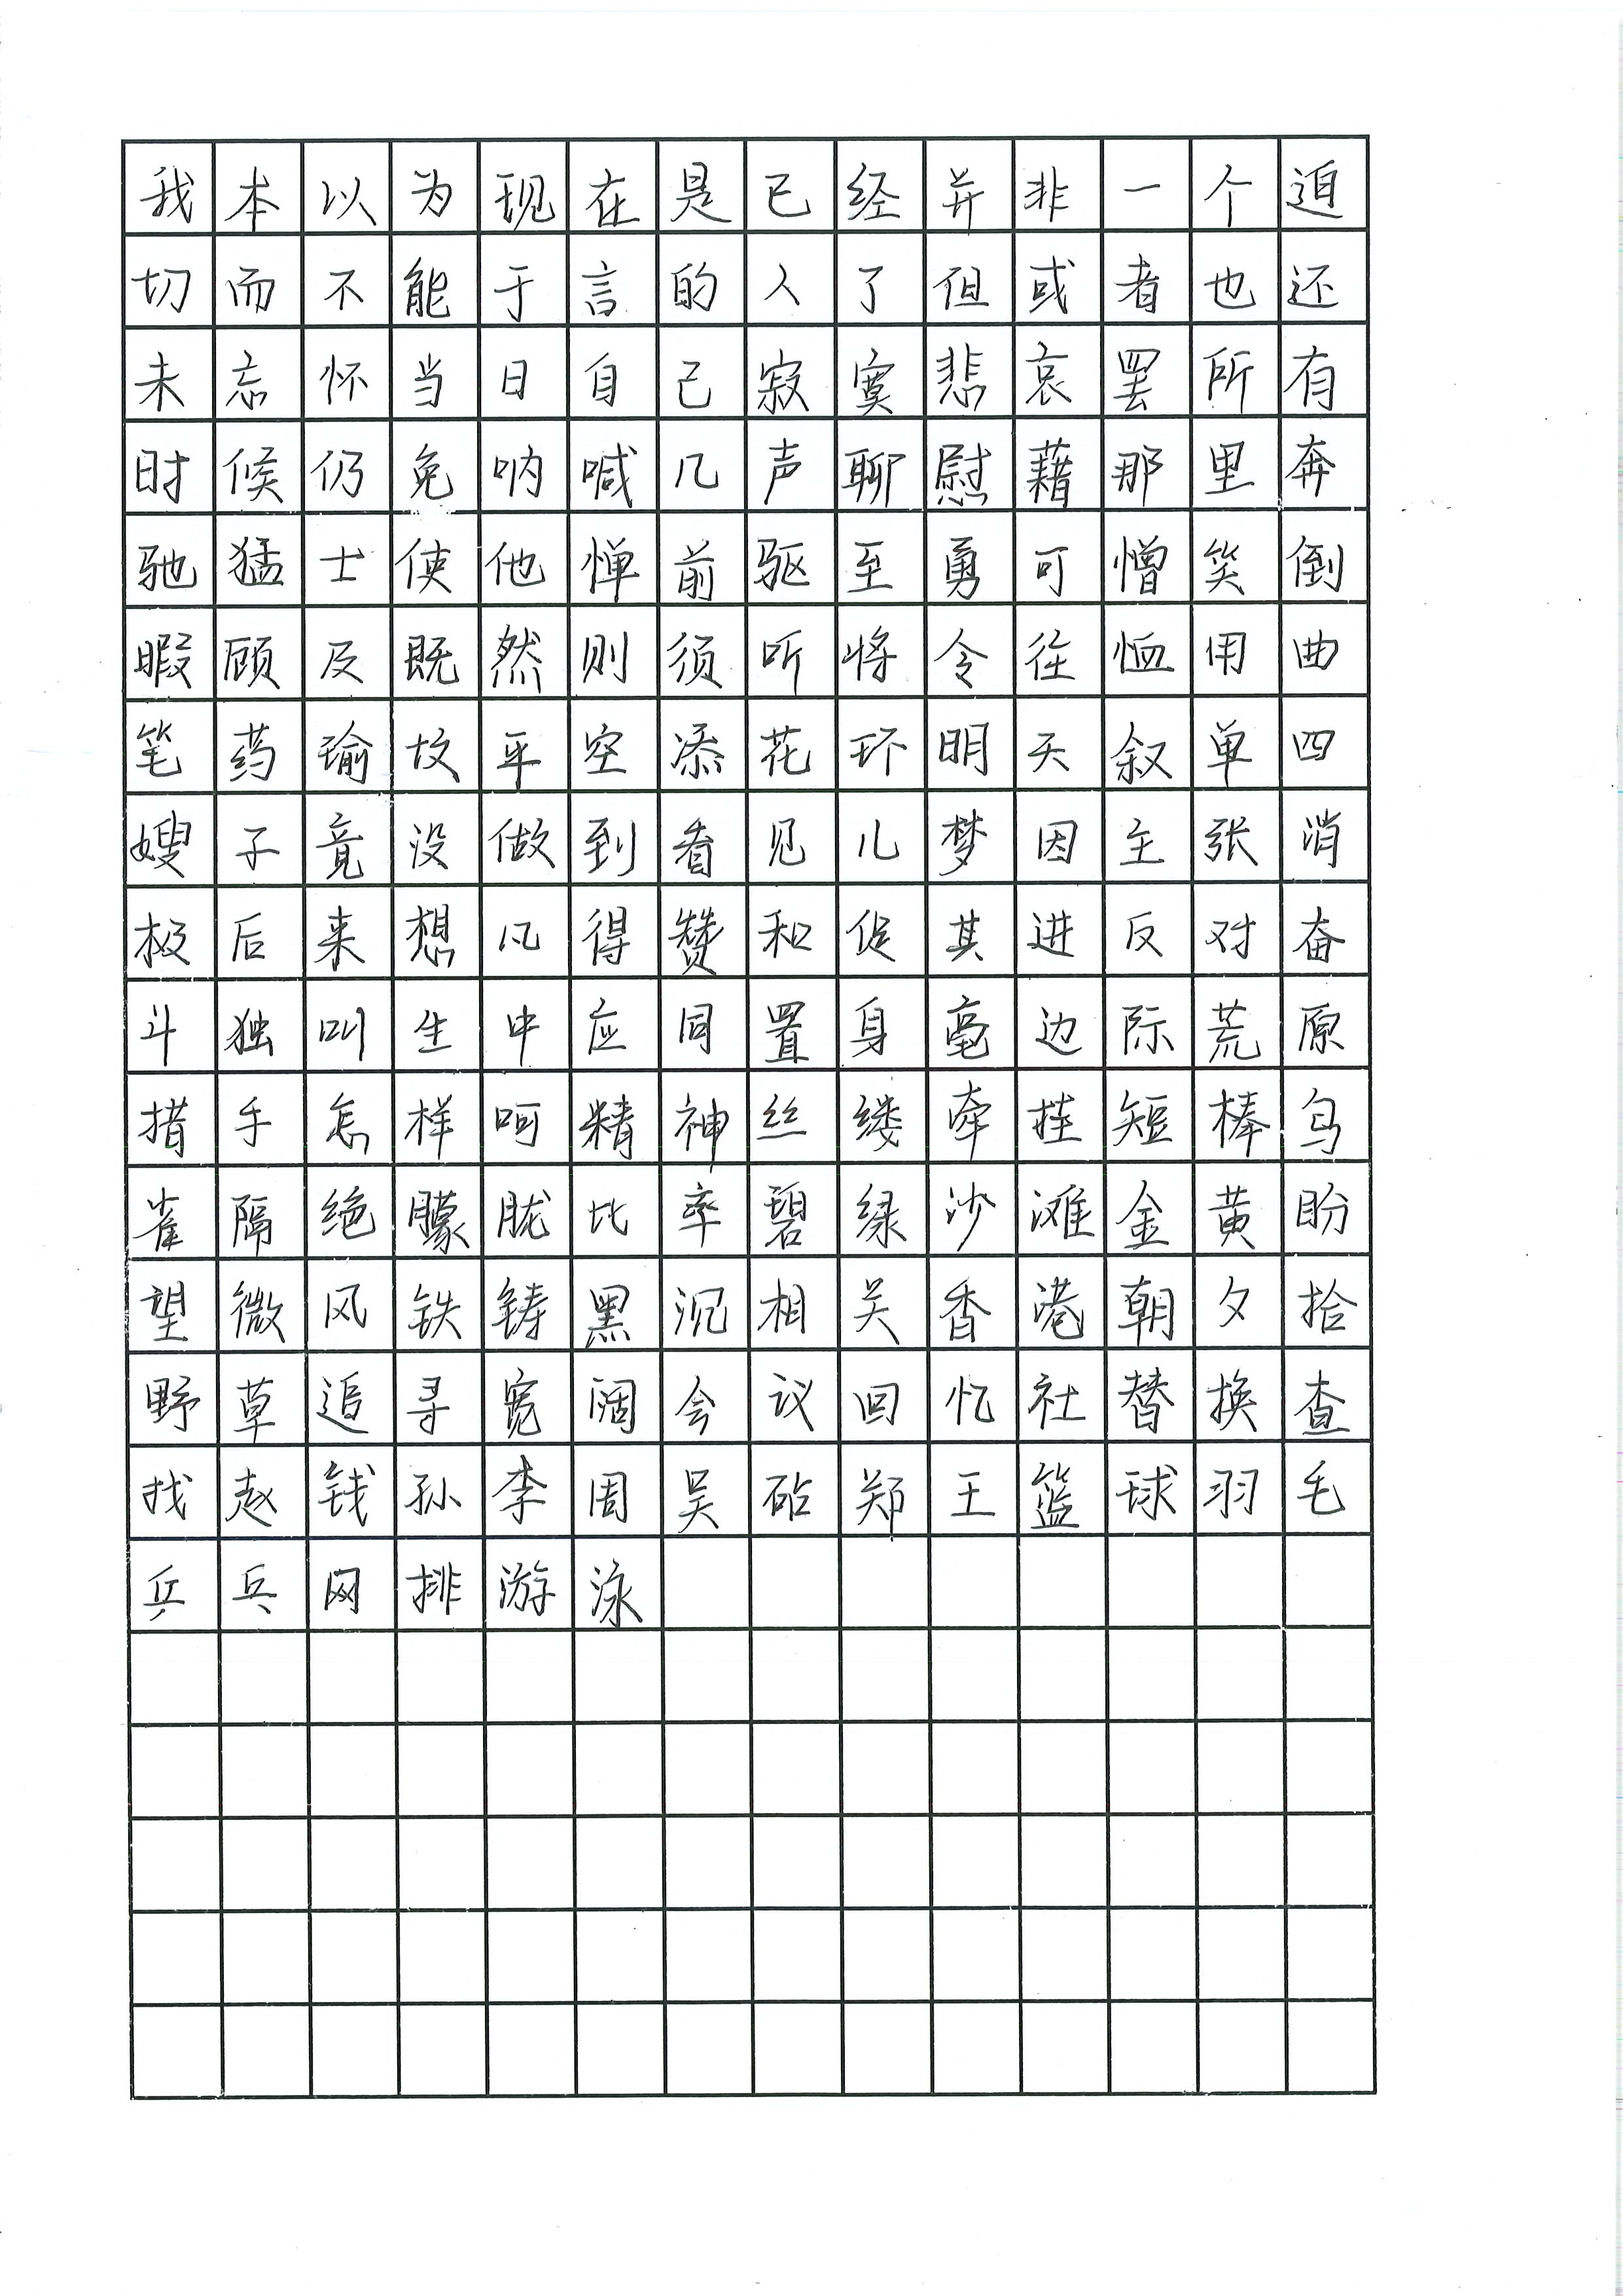 我本以为现在是已经并非一个迫
切而不能于言的人了但或者也还
未忘怀当日自己寂寞悲哀罢所有
时候仍免呐喊几声聊慰藉那里奔
驰猛士使他惮前驱至勇可憎笑倒
暇顾及既然则须听将令往恤用曲
笔药瑜坟平空添花环明天叙单四
嫂子竟没做到看见儿梦因主张消
极后来想凡得赞和促其进反对奋
斗独叫生中应同置身毫边际荒原
措手怎样呵精神丝缕牵挂短棒乌
雀隔绝朦胧比率碧绿沙滩金黄盼
望微风铁铸黑沉相关香港朝夕拾
野草追寻宽阔会议回忆社替换查
找赵钱孙李周吴砧郑王篮球羽毛
乒乓网排游泳